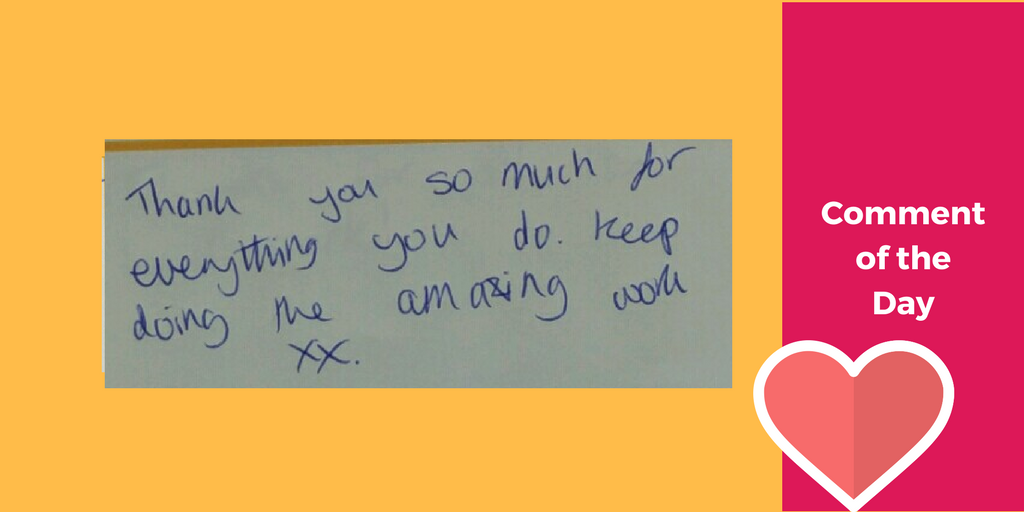 Thank you so much for
everything you do. Keep
doing the amazing work
xx.
Comment
of the
Day